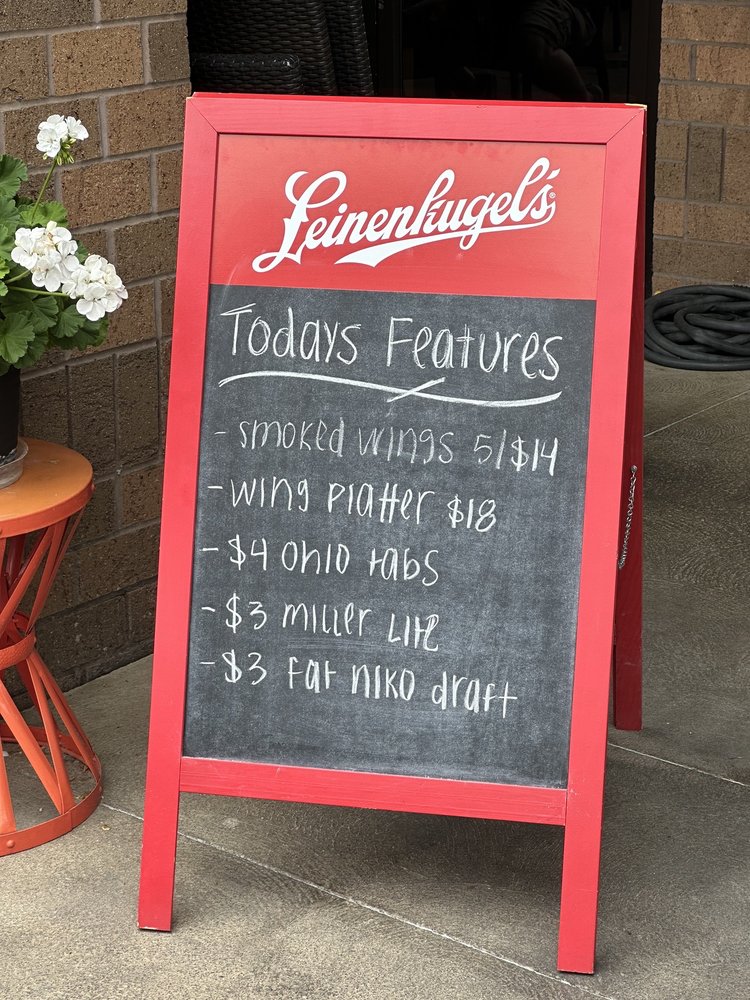 Leinenkugel's®
Todays Features
- smoked wings 5/$14
- wing platter $18
- $4 ohio tabs
- $3 miller lite
- $3 fat niko draft